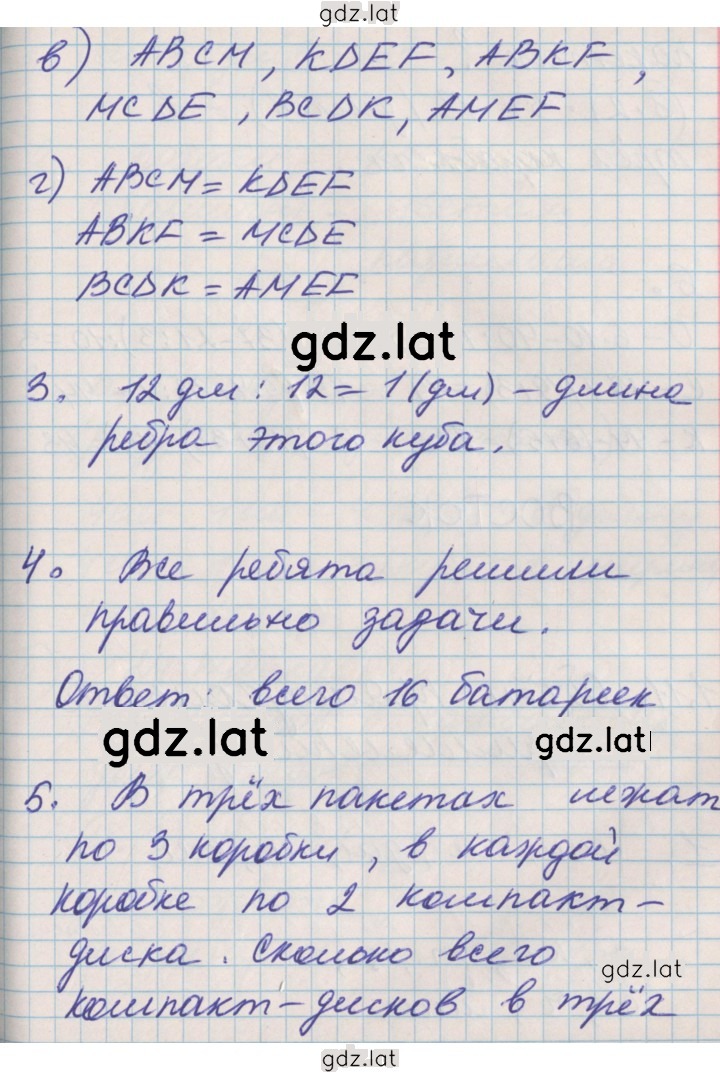 gdz.lat
в) ABCM, KDEF, ABKF,
MCDE, BCDK, AMEF
г) ABCM = KDEF
ABKF = MCDE
BCDK = AMEF
gdz.lat
3. 12 дм : 12 = 1 (дм) - длина
ребра этого куба.
4. Все ребята решили
правильно задачи.
Ответ: всего 16 батареек
gdz.lat
gdz.lat
5. В трёх пакетах лежат
по 3 коробки, в каждой
коробке по 2 компакт-
диска. Сколько всего
gdz.lat
компакт-дисков в трёх
gdz.lat